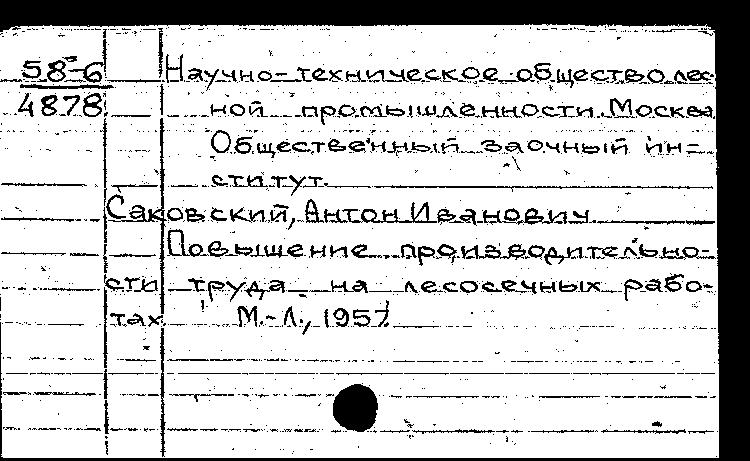 58-6 Научно-техническое общество лес-
4878 ной промышленности. Москва
Общественный заочный ин-
ститут.
Саковский, Антон Иванович
Повышение производительно-
сти труда на лесосечных рабо-
тах М.-Л., 1957.